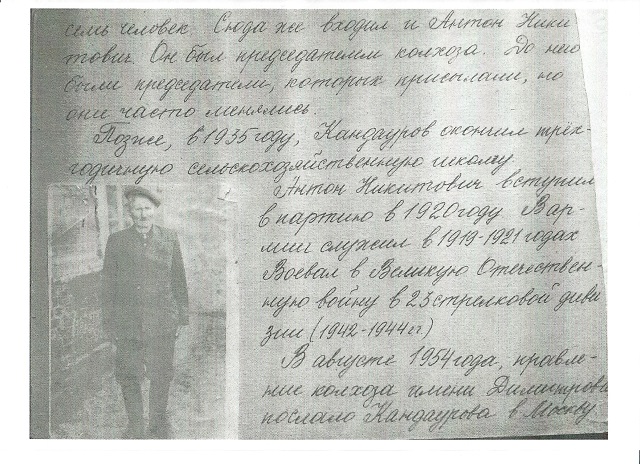 семь человек. Сюда же входил и Антон Ники
тович. Он был председателем колхоза. До него
были председатели, которых присылали, но
они часто менялись.
Позже, в 1935 году, Кандауров окончил трёх-
годичную сельскохозяйственную школу.
Антон Никитович вступил
в партию в 1920 году В ар-
мии служил в 1919-1921 годах
Воевал в Великую Отечествен-
ную войну в 23 стрелковой диви
зии (1942-1944 гг.)
В августе 1954 года, правле-
ние колхоза имени Димитрова
послало Кандаурова в Москву.